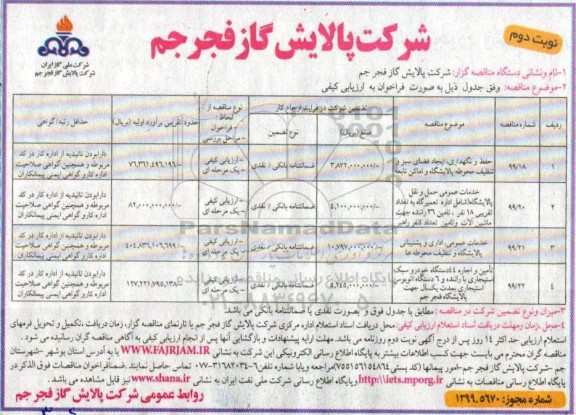 نوبت دوم
شرکت پالایش گاز فجر جم
شرکت ملی گاز ایران
شرکت پالایش گاز فجر جم
۱-نام ونشانی دستگاه مناقصه گزار: شرکت پالایش گاز فجر جم
۲-موضوع مناقصه: وفق جدول ذیل به صورت فراخوان به ارزیابی کیفی
ردیف
شماره مناقصه
موضوع مناقصه
مبلغ (ریال)
نوع تضمین
نوع مناقصه از لحاظ:
- فراخوان
- مراحل بررسی
حدود تقریبی برآورد اولیه (بریال)
حداقل رتبه/گواهی
۱
۹۹/۱۸
حفظ و نگهداری، ایجاد فضای سبز و تنظیف محوطه پالایشگاه و اماکن تابعه
ضمانتنامه بانکی / نقدی
- ارزیابی کیفی
- یک مرحله ای
دارابودن تائیدیه از اداره کار در کد مربوطه و همچنین گواهی صلاحیت اداره کار و گواهی ایمنی پیمانکاران
۲
۹۹/۲۰
خدمات عمومی حمل و نقل پالایشگاه(شامل اداره تعمیرگاه به تعداد تقریبی ۱۸ نفر ، تامین ۳۶ راننده جهت ماشین آلات و تامین تعداد کثیر راهبر
۴,۱۰۰,۰۰۰,۰۰۰/-
ضمانتنامه بانکی / نقدی
- ارزیابی کیفی
- یک مرحله ای
۸۲,۰۰۰,۰۰۰,۰۰۰/-
دارابودن تائیدیه از اداره کار در کد مربوطه و همچنین گواهی صلاحیت اداره کار و گواهی ایمنی پیمانکاران
۳
۹۹/۲۱
خدمات عمومی، اداری و پشتیبانی پالایشگاه و تنظیف محوطه ها
ضمانتنامه بانکی / نقدی
- ارزیابی کیفی
- یک مرحله ای
دارابودن تائیدیه از اداره کار در کد مربوطه و همچنین گواهی صلاحیت اداره کار و گواهی ایمنی پیمانکاران
۴
۹۹/۲۲
تامین و اجاره ۵۴ دستگاه خودرو سبک استیجاری با راننده و ۶ دستگاه اتوبوس استیجاری بمدت یکسال جهت پالایشگاه فجر جم
ضمانتنامه بانکی / نقدی
- ارزیابی کیفی
- یک مرحله ای
ParsNamadData
پایگاه اطلاع رسانی مناقصه و مزایده
۳-میزان ونوع تضمین شرکت در مناقصه : مطابق با جدول فوق و بصورت نقدی یا ضمانتنامه بانکی می باشد.
۴-محل ،زمان ومهلت دریافت اسناد استعلام ارزیابی کیفی: محل دریافت اسناد استعلام اداره مرکزی شرکت پالایش گاز فجر جم یا تارنمای مناقصه گزار، زمان دریافت ،تکمیل و تحویل فرمهای
استعلام ارزیابی حد اکثر ۱۴ روز پس از درج آگهی نوبت دوم روزنامه می باشد. مهلت ارایه پیشنهادات و بازگشایی آنها پس از انجام ارزیابی کیفی به آگاهی مناقصه گران رسانیده می شود.
مناقصه گران محترم می بایست جهت کسب اطلاعات بیشتر به پایگاه اطلاع رسانی الکترونیکی این شرکت به نشانی WWW.FAJRJAM.IR یا به آدرس استان بوشهر -شهرستان
جم -شرکت پالایش گاز فجر جم-امور پیمانها (کد پستی ۷۵۵۱۵۶۱۵۴۸۶۴)مراجعه ویا با شماره تلفن۳۱۶۸۲۰۳۴-۰۷۷ تماس حاصل نمایند.ضمنافراخوان مناقصات فوق الذکر در
پایگاه اطلاع رسانی مناقصات به نشانی http:\\iets.mporg.ir وپایگاه اطلاع رسانی شرکت ملی نفت ایران به نشانی www.shana.ir نیز قابل مشاهده می باشد.
شماره مجوز: ۱۳۹۹.۵۶۷۰
روابط عمومی شرکت پالایش گاز فجر جم